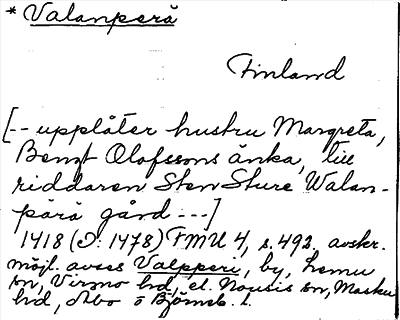 * Valanperä
Finland
[-- upplåter hustru Margreta,
Bengt Olofssons änka, till
riddaren Sten Sture Walan-
pärä gård ---]
1418 (D: 1478) FMU 4, s. 492. avskr.
möjl. avses Valpperi, by, Lemu
sn, Virmo hd, el. Nousis sn, Masku
hd, Åbo o Björneb. l.